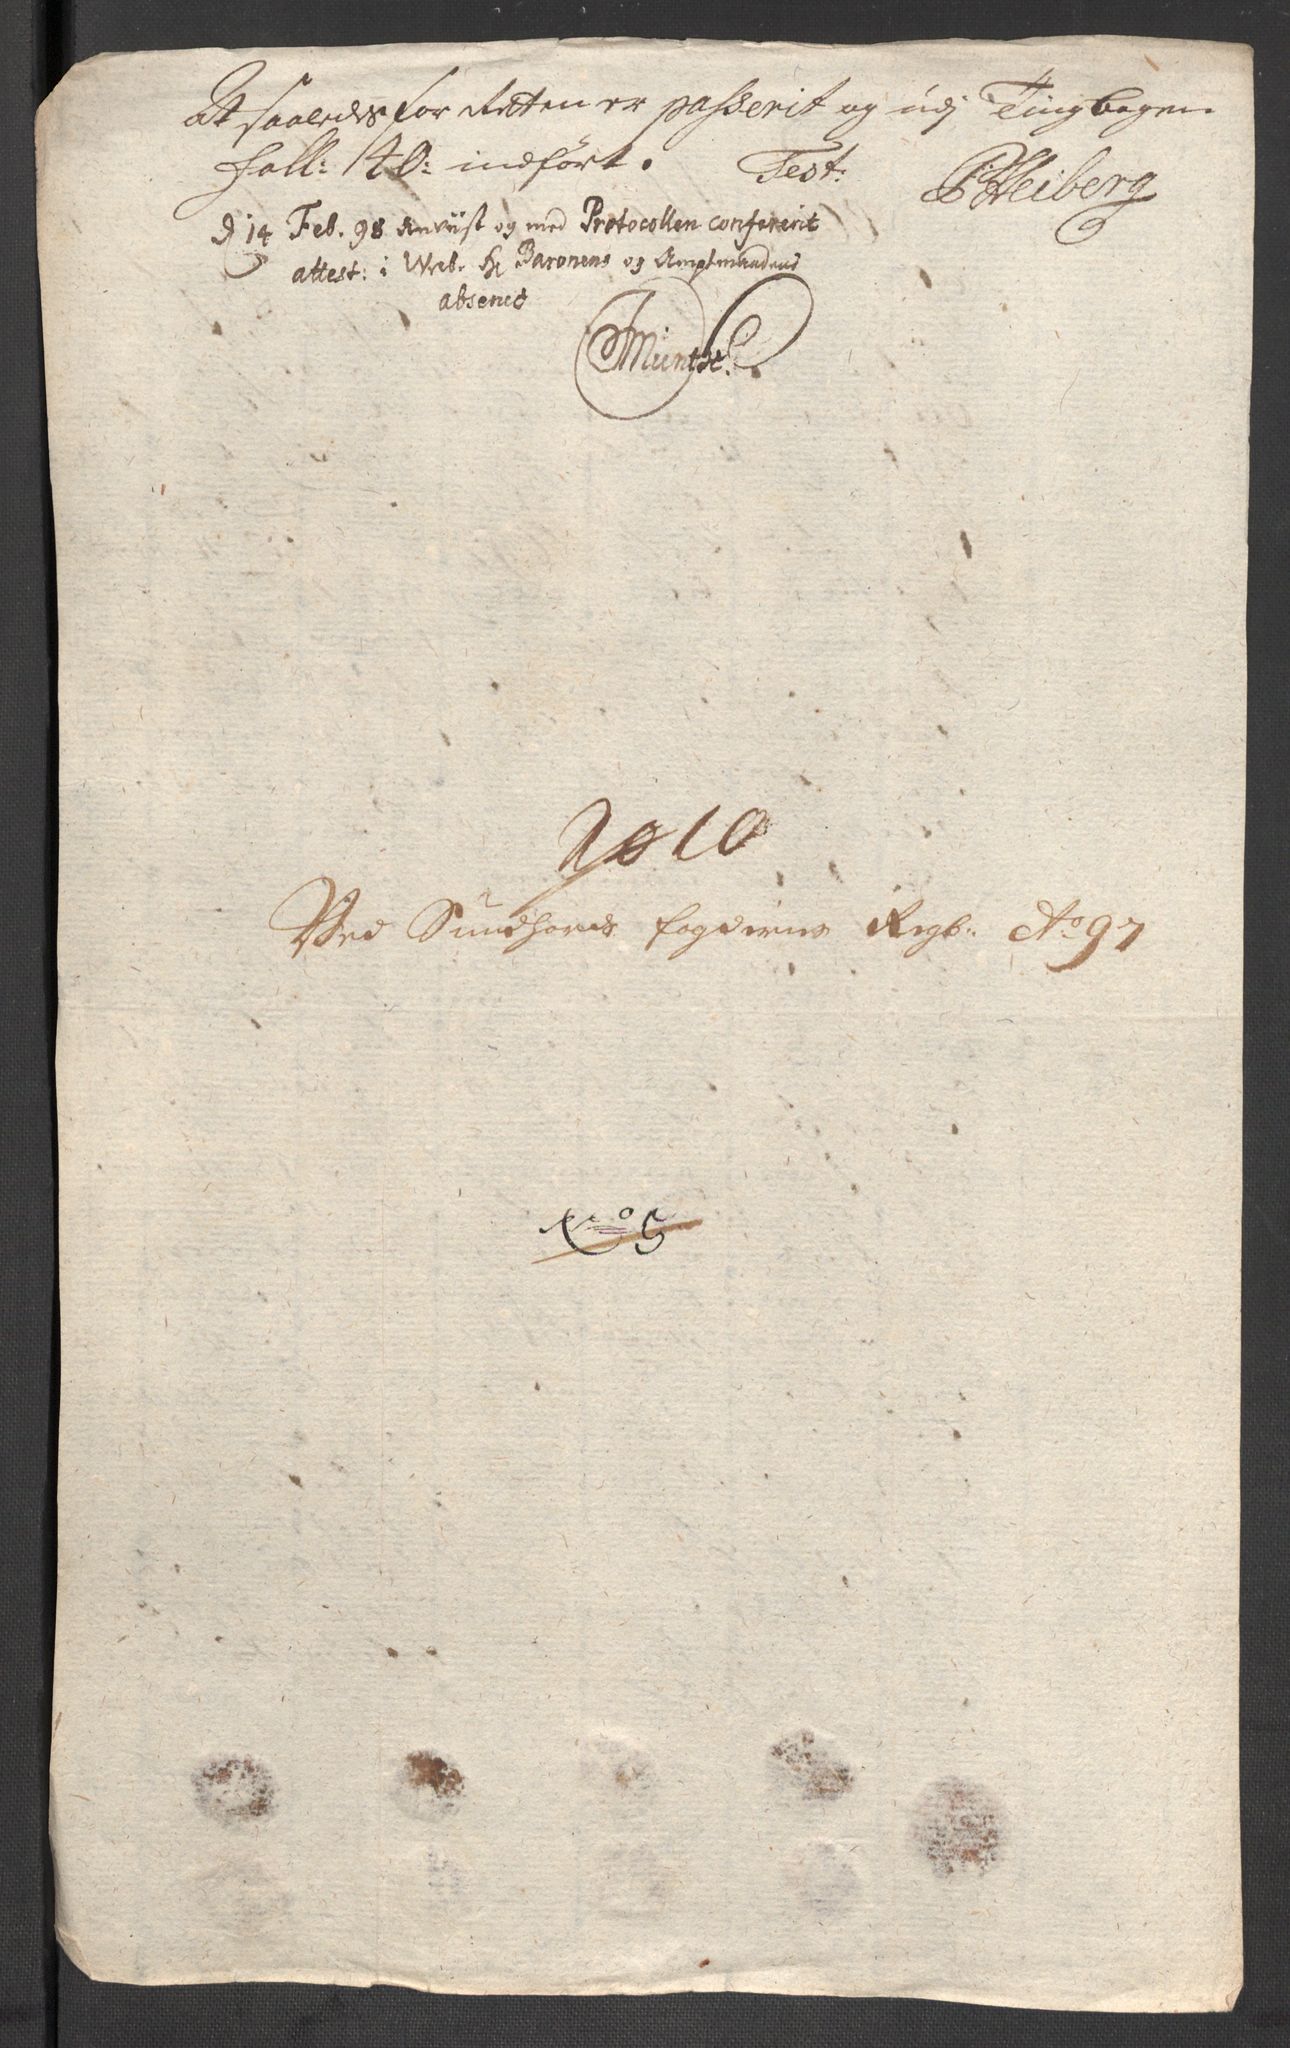 At saaledes for Retten er passerit og udj Tingbogen
foll: 140: indført. Test:
PHeiberg
d 14 Feb. 98 Anviist og med Protocollen confererit
attest: i Welb. Hr Baronens og Amptmandens
absence
JMunthe
No 10
Ved Sundhords fogderies Regb: Ao 97
No 5